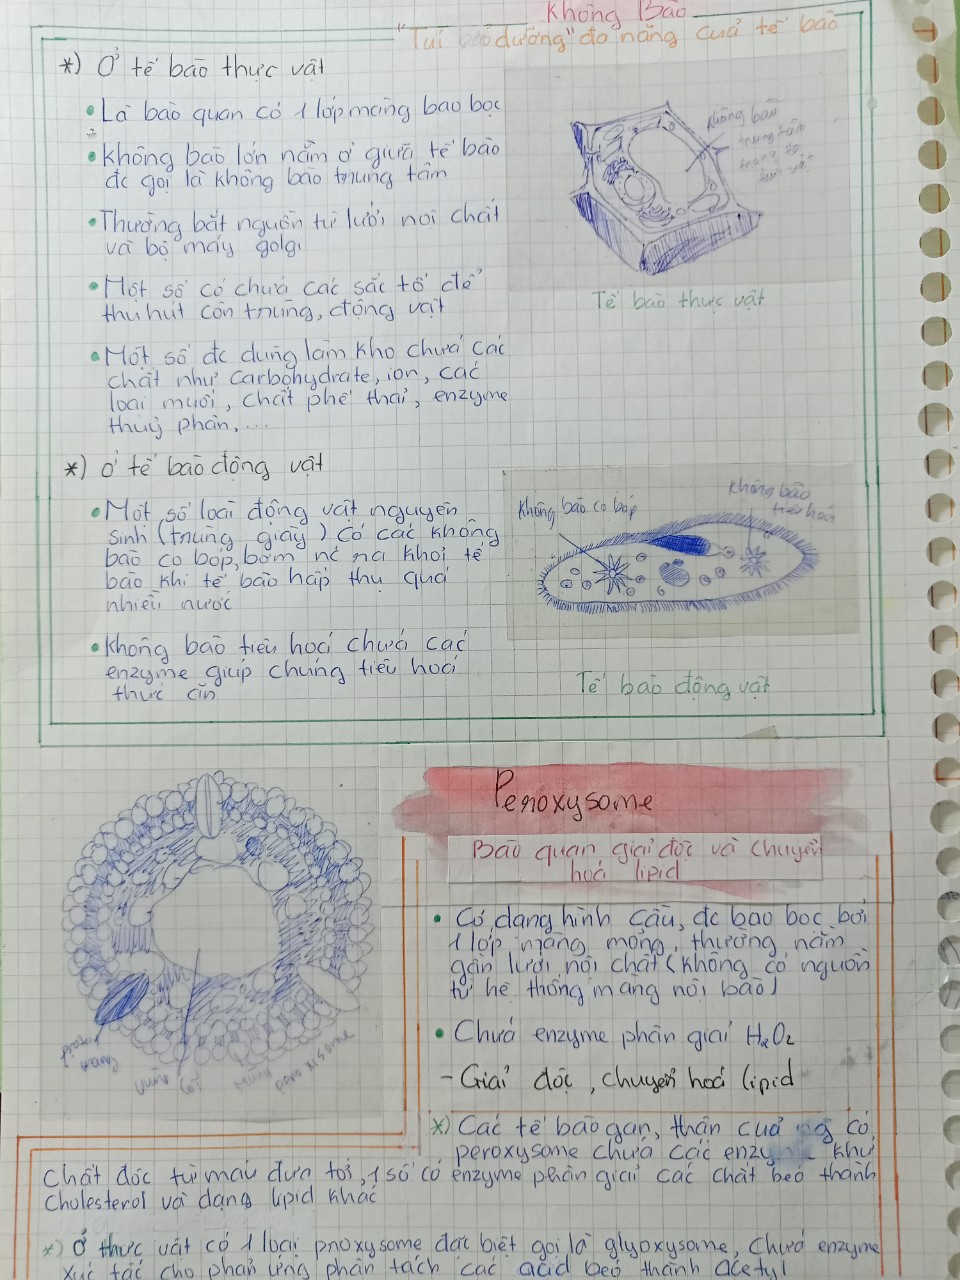 Không Bào
"Túi bảo dưỡng" đa năng của tế bào
*) Ở tế bào thực vật
• Là bào quan có 1 lớp màng bao bọc
• Không bào lớn nằm ở giữa tế bào
đc gọi là không bào trung tâm
• Thường bắt nguồn từ lưới nội chất
và bộ máy golgi
• Một số có chứa các sắc tố để
thu hút côn trùng, động vật
• Một số đc dùng làm kho chứa các
chất như carbohydrate, ion, các
loại muối, chất phế thải, enzyme
thuỷ phân, ...
không bào
trung tâm
Tế bào thực vật
*) ở tế bào động vật
• Một số loài động vật nguyên
sinh (trùng giày) có các không
bào co bóp, bơm nc ra khỏi tế
bào khi tế bào hấp thụ quá
nhiều nước
• Không bào tiêu hoá chứa các
enzyme giúp chúng tiêu hoá
thức ăn
Không bào co bóp
Không bào
tiêu hoá
Tế bào động vật
Peroxysome
Bào quan giải độc và chuyển
hoá lipid
• Có dạng hình cầu, đc bao bọc bởi
1 lớp màng mỏng, thường nằm
gần lưới nội chất (không có nguồn
từ hệ thống màng nội bào)
• Chứa enzyme phân giải H2O2
- Giải độc, chuyển hoá lipid
*) Các tế bào gan, thận của ng có
peroxysome chứa các enzyme khử
chất độc từ máu đưa tới, 1 số có enzyme phân giải các chất béo thành
cholesterol và dạng lipid khác
*) Ở thực vật có 1 loại proxysome đặc biệt gọi là glyoxysome, chứa enzyme
xúc tác cho phản ứng phân tách các acid béo thành acetyl